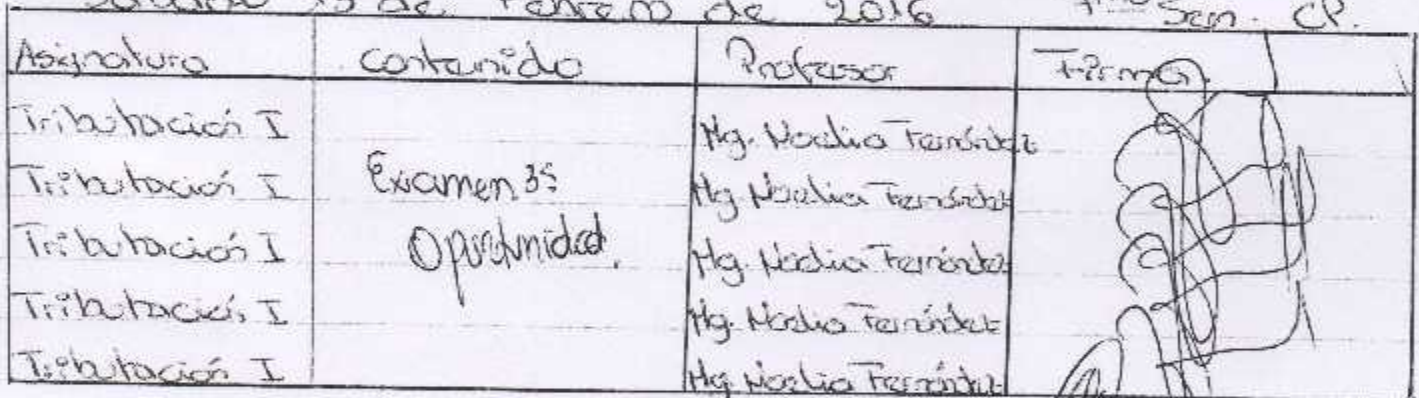 de Febrero de 2016 Sem. CP.
Asignatura contenido Profesor Firma
Tributación I Mg. Noelia Fernández
Tributación I Examen 3ª Mg. Noelia Fernández
Tributación I Oportunidad. Mg. Noelia Fernández
Tributación I Mg. Noelia Fernández
Tributación I Mg. Noelia Fernández